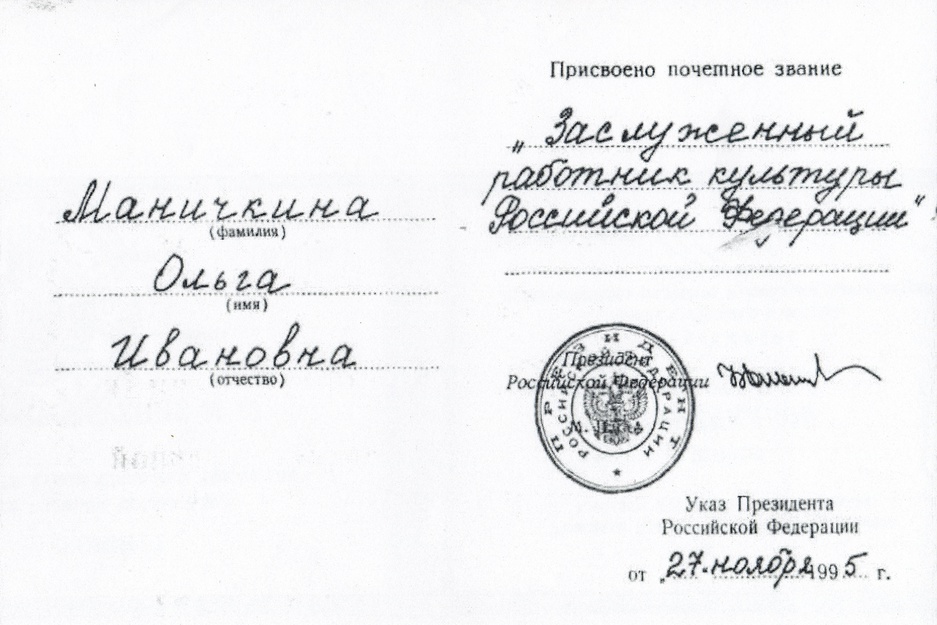 Маничкина
(фамилия)
Ольга
(имя)
Ивановна
(отчество)
Присвоено почетное звание
„Заслуженный
работник культуры
Российской Федерации“
Президент
Российской Федерации
М. П.
ПРЕЗИДЕНТ
РОССИЙСКОЙ ФЕДЕРАЦИИ
Указ Президента
Российской Федерации
от „27“ ноября 1995 г.